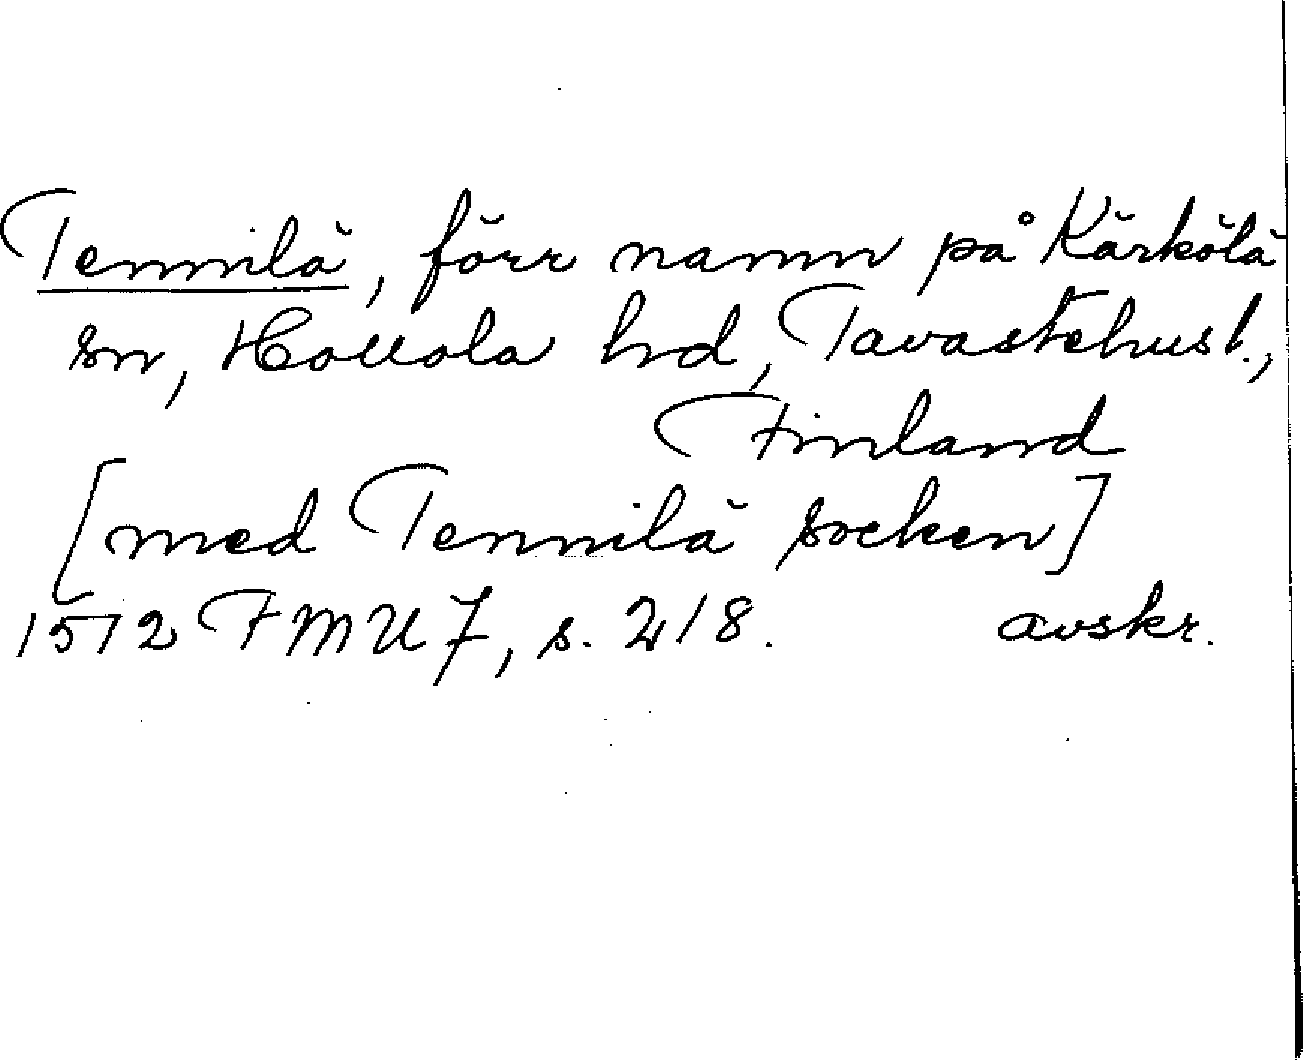 Tennilä, förr namn på Kärkölä
sn, Hollola hd, Tavastehus l.,
Finland
[med Tennilä socken]
1512 FMU 7, s. 218. avskr.